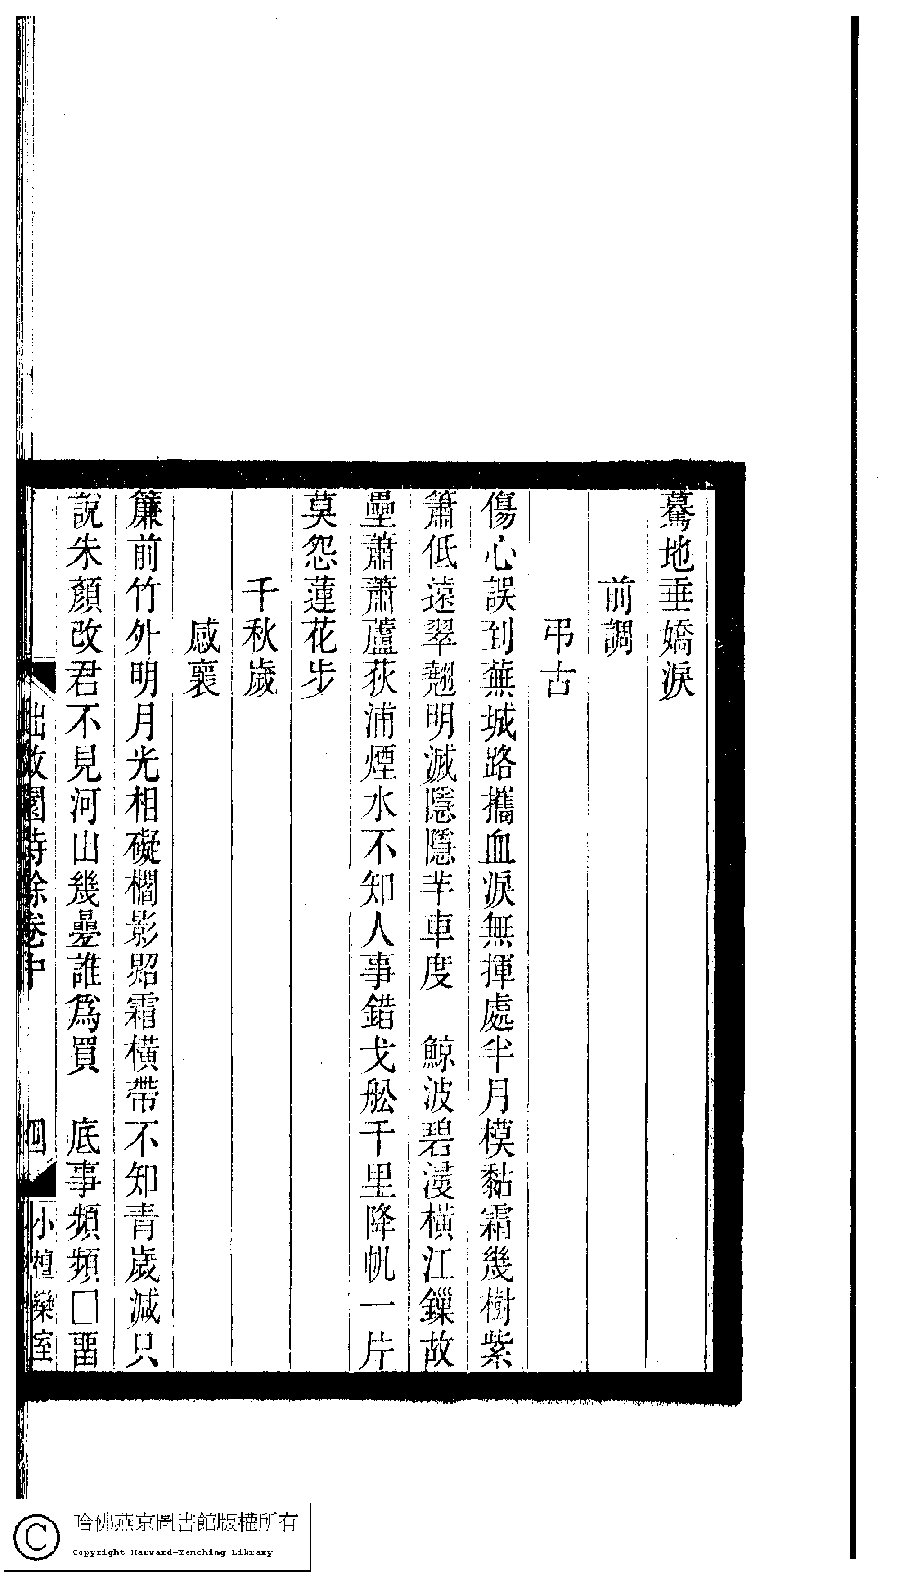 驀地垂嬌淚
前調
弔古
傷心誤到蕪城路攜血淚無揮處半月模黏霜幾樹紫
簫低遠翠翹明滅隱隱羊車度　鯨波碧浸橫江鏁故
壘蕭蕭蘆荻浦煙水不知人事錯戈舩千里降帆一片
莫怨蓮花步
千秋歲
感襄
簾前竹外明月光相礙櫩影照霜橫帶不知青歲減只
說朱顏改君不見河山幾曡誰為買　底事頻頻□畱
拙政園詩餘卷中　四　小檀欒室
哈佛燕京圖書館版權所有
Copyright Harvard-Yenching Library